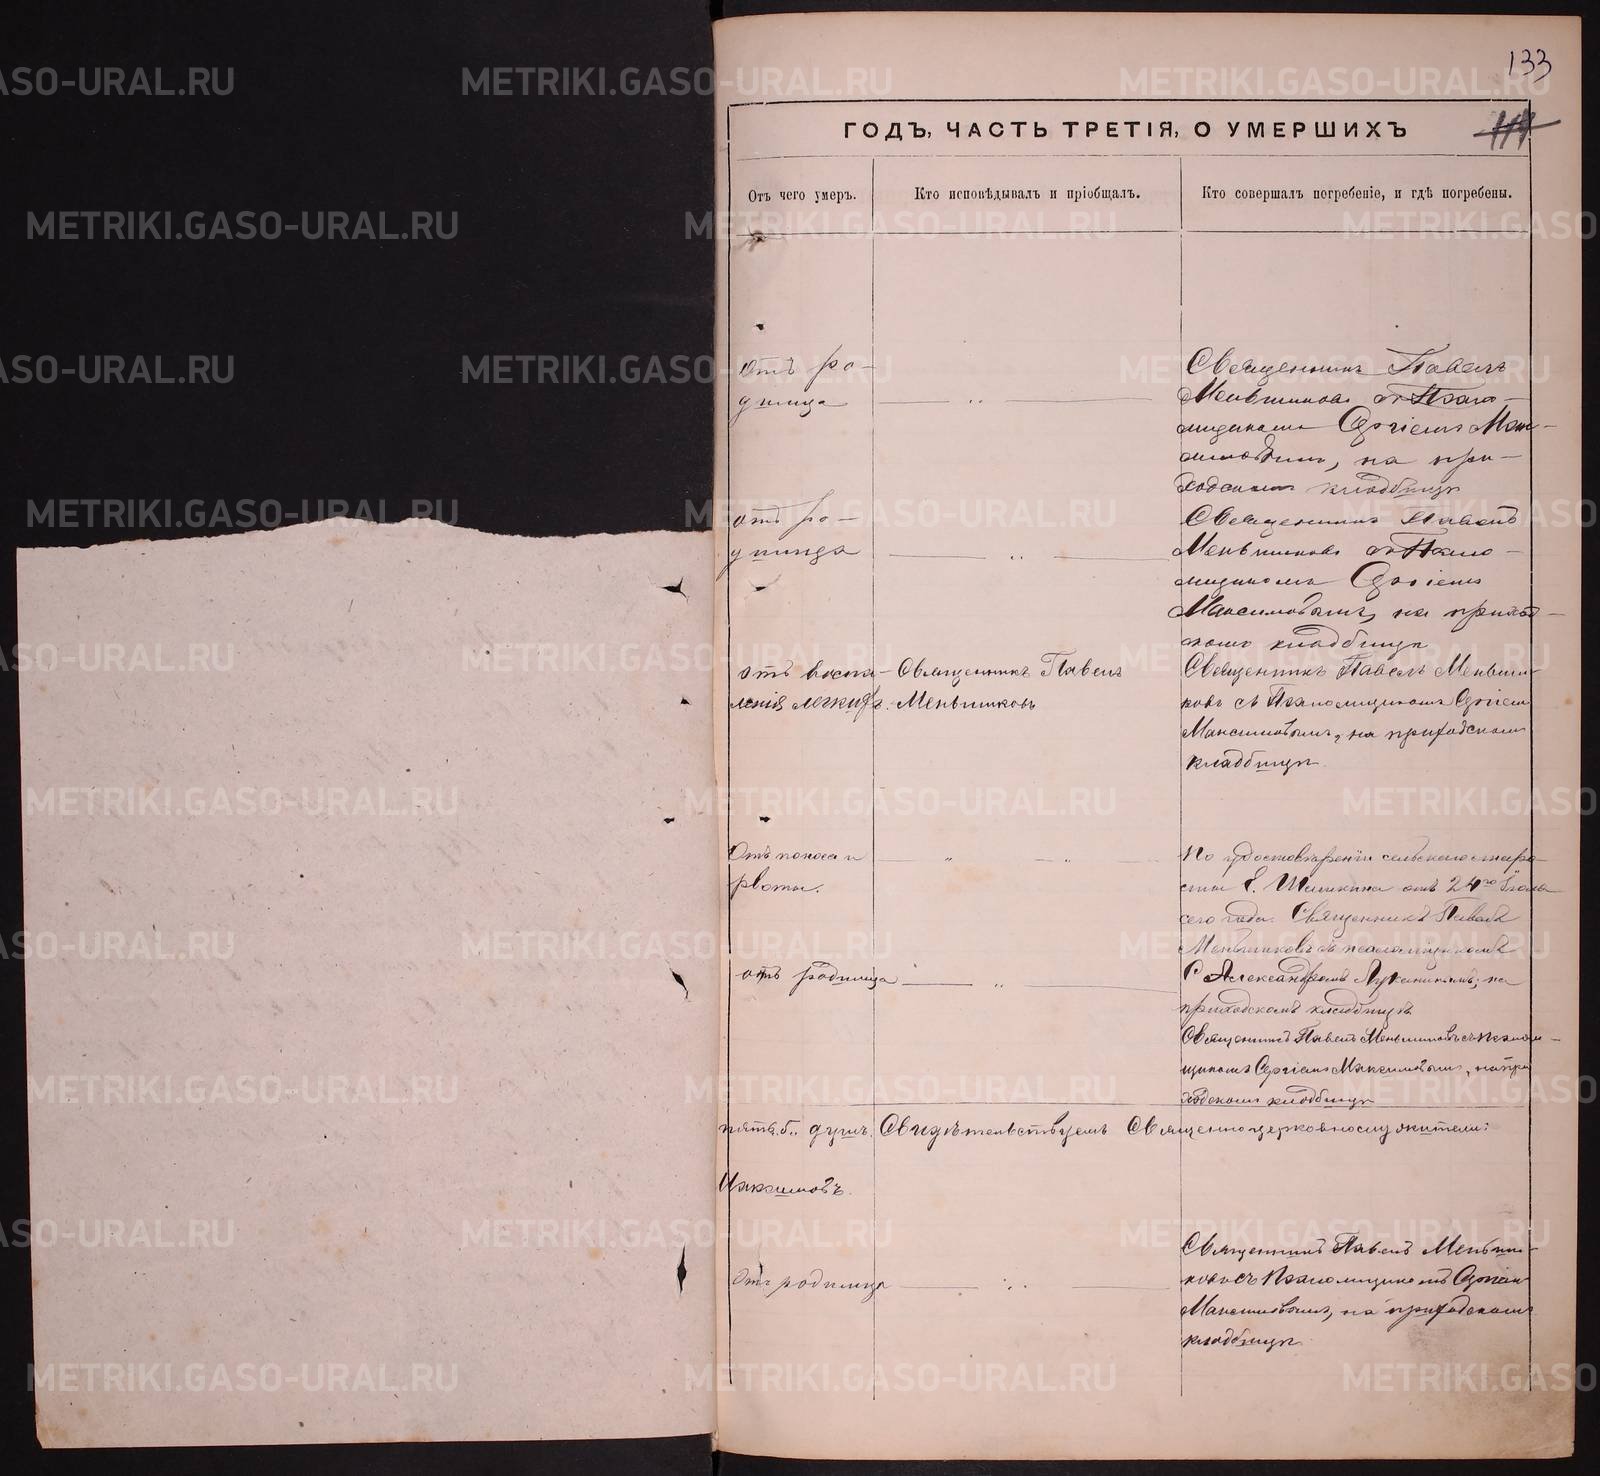 133
ГОДЪ, ЧАСТЬ ТРЕТІЯ, О УМЕРШИХЪ
Отъ чего умеръ.
Кто исповѣдывалъ и пріобщалъ.
Кто совершалъ погребеніе, и гдѣ погребены.
отъ ро-
димца
Священникъ Павелъ
Меньшиковъ съ Псало-
мщикомъ Сергіемъ Мак-
симовымъ, на при-
ходскомъ кладбищѣ
отъ ро-
димца
Священникъ Павелъ
Меньшиковъ съ Псало-
мщикомъ Сергіемъ
Максимовымъ, на приход-
скомъ кладбищѣ
отъ воспа-
ленія легкихъ.
Священникъ Павелъ
Меньшиковъ
Священникъ Павелъ Меньши-
ковъ съ Псаломщикомъ Сергіем
Максимовымъ, на приходскомъ
кладбищѣ.
Отъ поноса и
рвоты.
По удостовѣренію сельского старо-
сты отъ 24го Іюля
сего года. Священникъ Павелъ
Меньшиковъ съ псаломщикомъ
Александромъ Лукинымъ, на
приходскомъ кладбищѣ
отъ родимца
Священникъ Павелъ Меньшиковъ съ псалом-
щикомъ Сергіемъ Максимовымъ, на при
ходскомъ кладбищѣ
пять 5.. душъ. Свидѣтельствуемъ Священноцерковнослужители:
Максимовъ.
Отъ родимца
Священникъ Павелъ Меньши-
ковъ съ Псаломщикомъ Сергіем
Максимовымъ, на приходскомъ
кладбищѣ.
METRIKI.GASO-URAL.RU